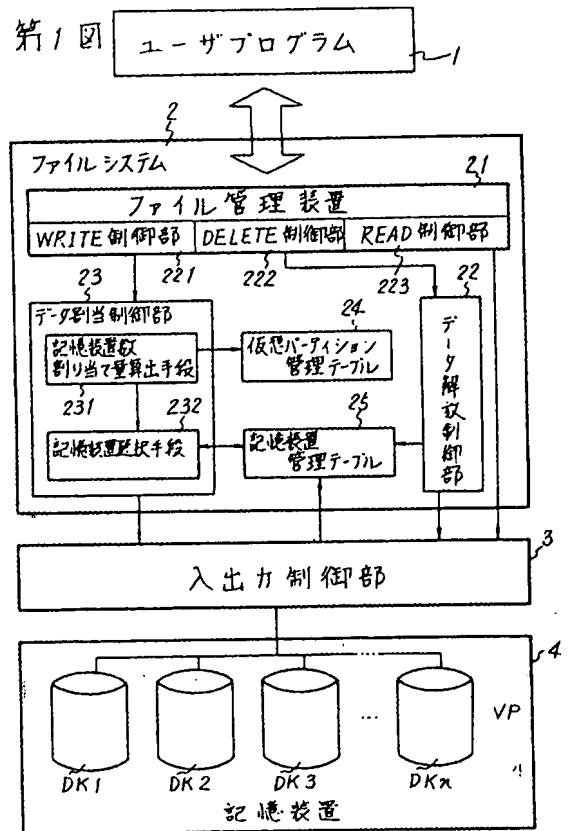 第1図
ユーザプログラム
1
2
ファイルシステム
21
ファイル管理装置
WRITE制御部
DELETE制御部
READ制御部
221
222
223
22
23
データ割当制御部
記憶装置数
割り当て量算出手段
231
24
仮想パーティション
管理テーブル
232
記憶装置選択手段
25
記憶装置
管理テーブル
データ解放制御部
3
入出力制御部
4
DK1
DK2
DK3
...
...
DKn
VP
記憶装置